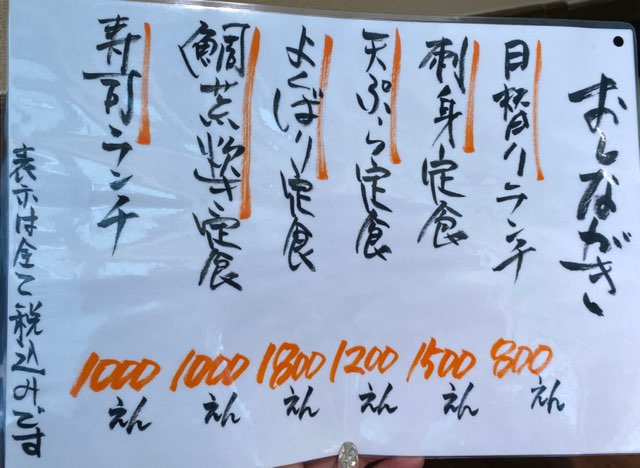 おしながき
日替りランチ
800えん
刺身定食
1500えん
天ぷら定食
1200えん
よくばり定食
1800えん
鯛荒炊定食
1000えん
寿司ランチ
1000えん
表示は全て税込みです